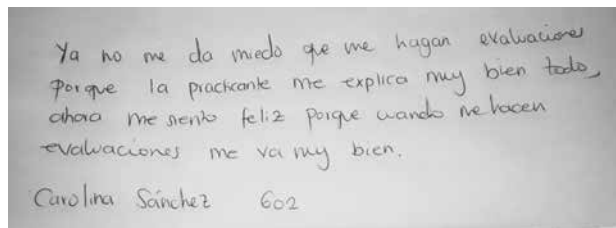 Ya no me da miedo que me hagan evaluaciones
porque la practicante me explica muy bien todo,
ahora me siento feliz porque cuando me hacen
evaluaciones me va muy bien.
Carolina Sánchez 602